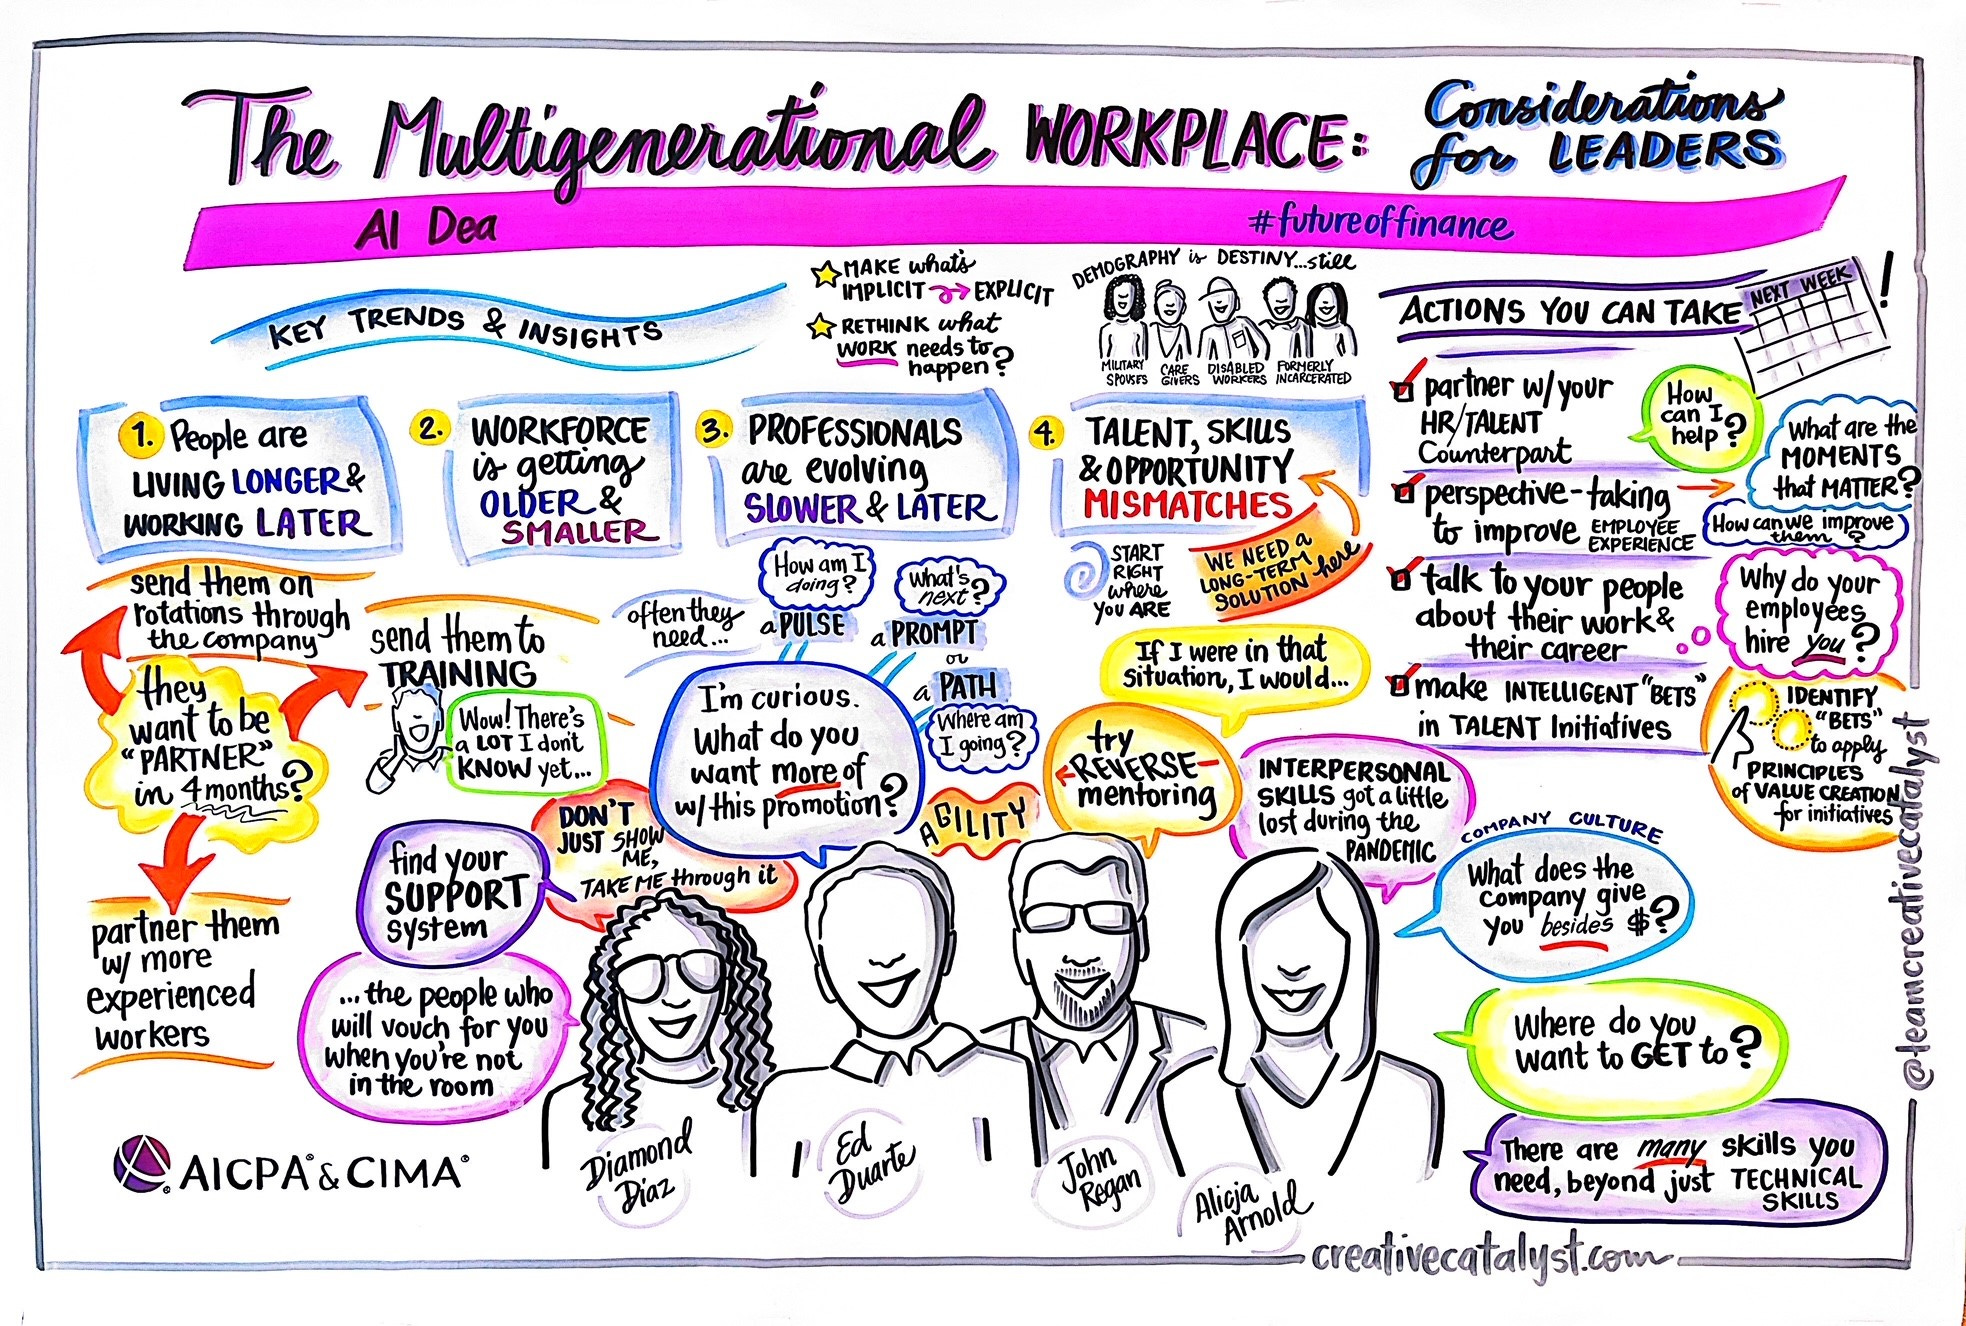 The Multigenerational WORKPLACE:
Considerations
for LEADERS
AI Dea
#futureoffinance
KEY TRENDS & INSIGHTS
MAKE what's
IMPLICIT → EXPLICIT
RETHINK what
WORK needs to
happen?
DEMOGRAPHY is DESTINY...still
MILITARY
SPOUSES
CARE
GIVERS
DISABLED
WORKERS
FORMERLY
INCARCERATED
1. People are
LIVING LONGER &
WORKING LATER
2. WORKFORCE
is getting
OLDER &
SMALLER
3. PROFESSIONALS
are evolving
SLOWER & LATER
4. TALENT, SKILLS
& OPPORTUNITY
MISMATCHES
START
RIGHT
where
YOU ARE
WE NEED A
LONG-TERM
SOLUTION here
send them on
rotations through
the company
they
want to be
"PARTNER"
in 4 months?
send them to
TRAINING
Wow! There's
a LOT I don't
KNOW yet...
partner them
w/ more
experienced
workers
often they
need...
How am I
doing?
a PULSE
What's
next?
a PROMPT
or
a PATH
Where am
I going?
I'm curious.
What do you
want more of
w/this promotion?
AGILITY
DON'T
JUST SHOW
ME,
TAKE ME through it
find your
SUPPORT
system
...the people who
will vouch for you
when you're not
in the room
If I were in that
situation, I would...
try
REVERSE-
mentoring
INTERPERSONAL
SKILLS got a little
lost during the
PANDEMIC
COMPANY CULTURE
What does the
company give
you besides $?
Where do you
want to GET to?
There are many skills you
need, beyond just TECHNICAL
SKILLS
ACTIONS YOU CAN TAKE
NEXT WEEK!
partner w/your
HR/TALENT
Counterpart
How
can I
help?
perspective-taking
to improve EMPLOYEE
EXPERIENCE
What are the
MOMENTS
that MATTER?
How can we improve
them?
talk to your people
about their work &
their career
Why do your
employees
hire you?
make INTELLIGENT "BETS"
in TALENT Initiatives
IDENTIFY
"BETS"
to apply
PRINCIPLES
of VALUE CREATION
for initiatives
Diamond
Diaz
Ed
Duarte
John
Regan
Alicja
Arnold
AICPA® & CIMA®
creativecatalyst.com
@teamcreativecatalyst